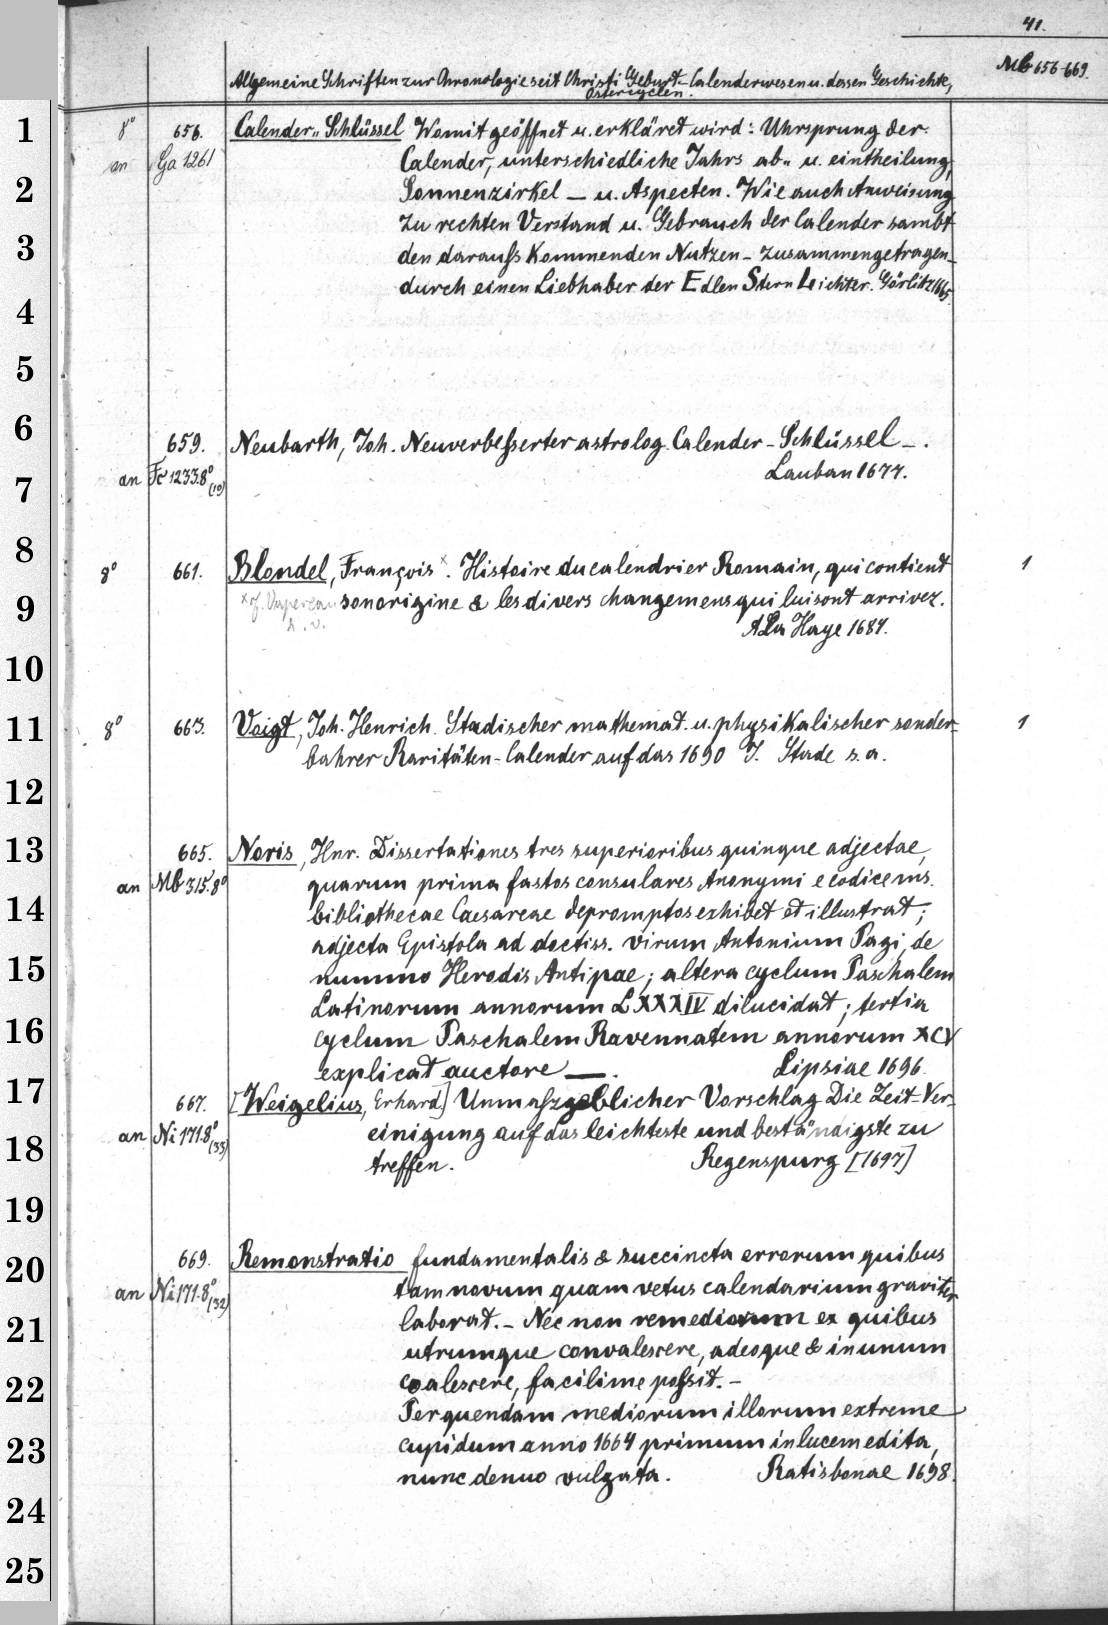 41.
Mb 656-669.
Allgemeine Schriften zur Chronologie seit Christi Geburt - Calenderwesen u. dessen Geschichte,
Ostercyclen.
1
8° 656. Calender„ Schlüssel Womit geöffnet u. erkläret wird: Uhrsprung der
an Ga 1261 Calender, unterschiedliche Jahrs ab„ u. eintheilung,
2
Sonnenzirkel — u. Aspecten. Wie auch Anweisung
zu rechten Verstand u. Gebrauch der Calender sambt
3
den darauſs Kommenden Nutzen - zusammengetragen -
durch einen Liebhaber der Edlen Stern Lichter. Görlitz 1665.
4
5
6
659. Neubarth, Joh. Neuverbeſserter astrolog. Calender - Schlüssel -.
an Fc 1233.8° (10) Lauban 1677.
7
8
8° 661. Blondel, François ˣ. Histoire du calendrier Romain, qui contient 1
9
ˣ cf. Vapereau son origine & les divers changemens qui lui sont arrivez.
s. v. A La Haye 1684.
10
11
8° 663. Voigt, Joh. Henrich. Stadischer mathemat. u. physikalischer sonder- 1
bahrer Raritäten-Calender auf das 1690 J. Stade s. a.
12
13
665. Noris, Hnr. Dissertationes tres superioribus quinque adjectae,
an Mb 315.8° quarum prima fastos consulares Anonymi e codice ms.
14
bibliothecae Caesareae depromptos exhibet et illustrat;
adjecta Epistola ad doctiss. virum Antonium Pagi, de
15
nummo Herodis Antipae; altera cyclum Paschalem
Latinorum annorum LXXXIV dilucidat; tertia
16
cyclum Paschalem Ravennatem annorum XCV
explicat auctore —. Lipsiae 1696.
17
667. [Weigelius, Erhard] Unmaſzgeblicher Vorschlag Die Zeit-Ver-
an Ni 171.8° (33) einigung auf das leichteste und beständigste zu
18
treffen. Regenspurg [1697]
19
669. Remonstratio fundamentalis & succincta errorum quibus
20
an Ni 171.8° (32) tam novum quam vetus calendarium graviter
21
laborat. - Nec non remediorum ex quibus
utrumque convalescere, adeoque & in unum
22
coalescere, facilime poſsit. -
Per quendam mediorum illorum extreme
23
cupidum anno 1664 primum in lucem edita,
nunc denuo vulgata. Ratisbonae 1698.
24
25